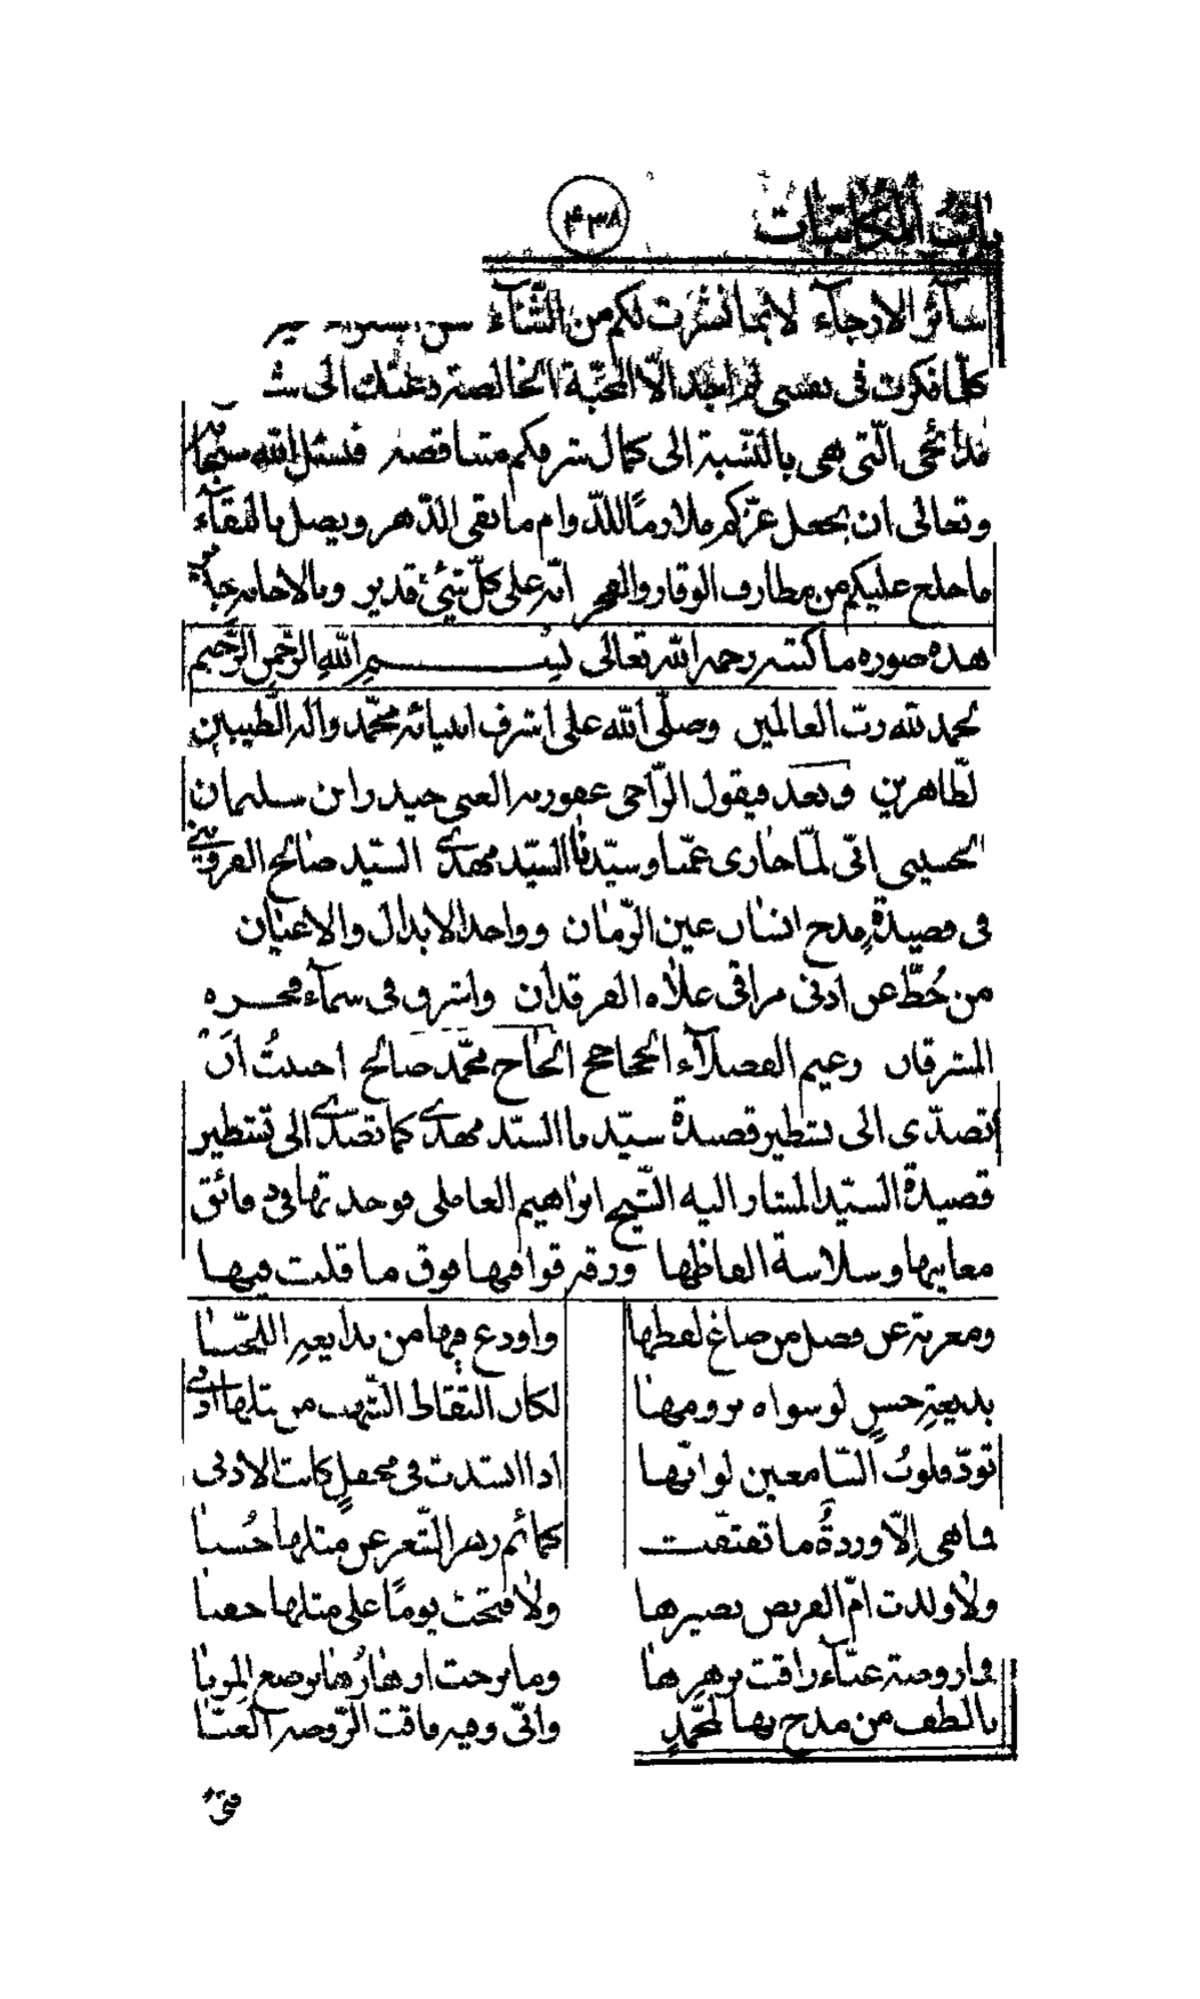 باب المكاتبات
۴۳۸
سآئر الارجآء لانما نشرت لكم من الثنآء
كلما فكرت في نفسي لم اجد الّا المحبّة الخالصة دعتك الى
مدائحي الّتي هي بالنّسبة الى كمال شرفكم متناقصة فنسئل الله سبحانه
وتعالى ان يجعل عزّكم ملازمًا للدّوام ما بقي الدّهر ويصل بالبقآء
ما خلع عليكم من مطارف الوقار والفخر انّه على كلّ شيئ قدير وبالاجابة
هذه صورة ما كتبه رحمه الله تعالى بسم الله الرّحمن الرّحيم
لحمد لله ربّ العالمين وصلّى الله على اشرف انبيائه محمّد وآله الطّيبين
لطّاهرين وبعد فيقول الرّاجي عفو ربه الغني حيدر ابن سليمان
الحسيني انّي لمّا جارى عمّنا وسيّدنا السيّد مهدي السيّد صالح القزويني
في قصيدةٍ مدح انسان عين الزّمان وواحد الابدال والاعيان
من حُطّ عن ادنى مراقي علاه الفرقدان واشرق في سمآء فخره
المشرقان زعيم الفضلآء الجحاجح الحاج محمّد صالح احببتُ انْ
اتصدّى الى تشطير قصيدة سيّدنا السيّد مهدي كما تصدّى الى تشطير
قصيدة السيّد المشار اليه الشّيخ ابراهيم العاملي فوجدتها في فائق
معانيها وسلاسة الفاظها ورقة قوافيها فوق ما قلت فيها
ومعربة عن فضل من صاغ لفظها واودع فيها من بدايعه اللّحنا
بديعةِ حسنٍ لو سواه يرومها لكان التقاط الشّهب من مثلها ادنى
تودّ قلوبُ السّامعين لو انّها اذا انشدت في محفلٍ كانت الاذنى
فما هي إلّا وردةٌ ما تفتقت كمائم زهر الشّعر عن مثلها حُسنا
ولا ولدت امّ القريض نظيرها ولا فتحت يومًا على مثلها جفنا
فما روضة غنّآء راقت بزهرها وما برحت ازهارُها ترضع المزنا
بالطف من مدح بها لمحمّدٍ وانّى وفيه فاقت الرّوضة الغنّا